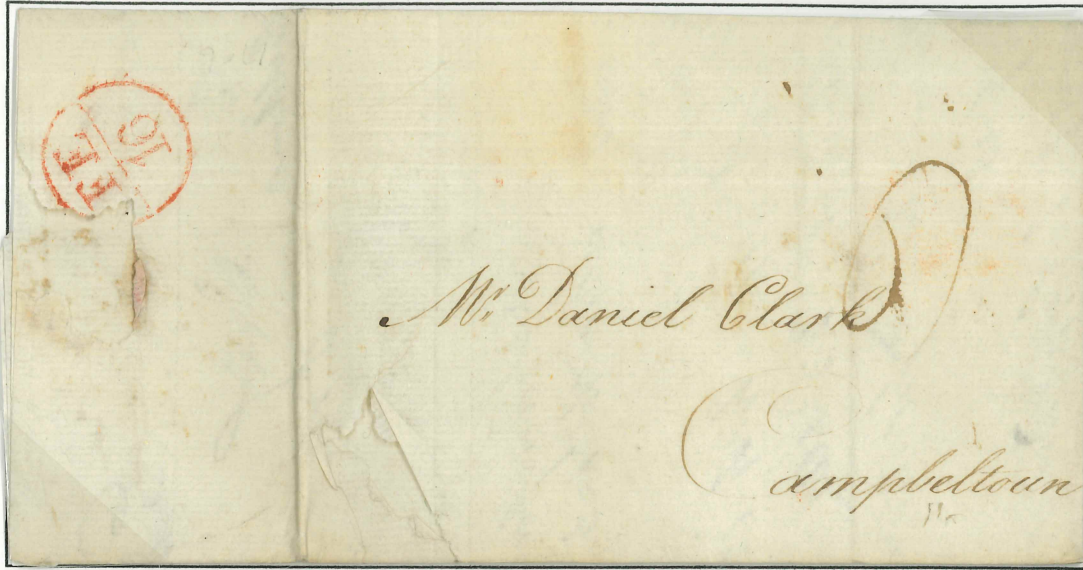 FE
16
Mr. Daniel Clark
Campbeltoun